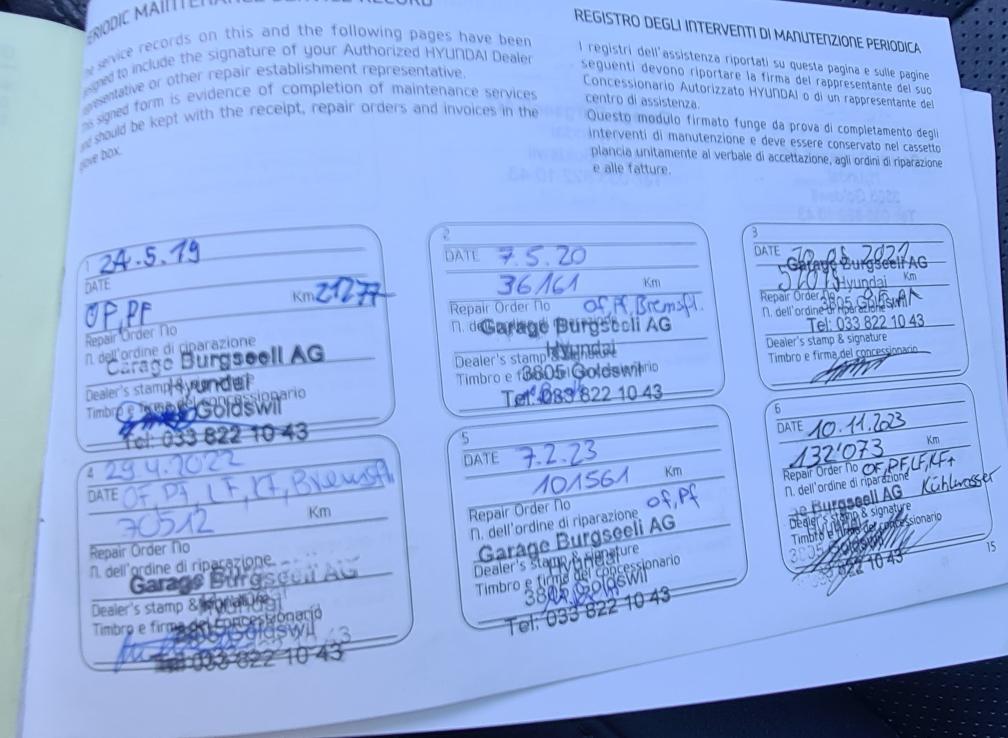 PERIODIC MAINTENANCE SERVICE RECORD
service records on this and the following pages have been
to include the signature of your Authorized HYUNDAI Dealer
representative or other repair establishment representative.
signed form is evidence of completion of maintenance services
should be kept with the receipt, repair orders and invoices in the
box.
REGISTRO DEGLI INTERVENTI DI MANUTENZIONE PERIODICA
I registri dell'assistenza riportati su questa pagina e sulle pagine
seguenti devono riportare la firma del rappresentante del suo
Concessionario Autorizzato HYUNDAI o di un rappresentante del
centro di assistenza.
Questo modulo firmato funge da prova di completamento degli
interventi di manutenzione e deve essere conservato nel cassetto
plancia unitamente al verbale di accettazione, agli ordini di riparazione
e alle fatture.
1 24.5.19
DATE
Km 21277
OP, PF
Repair Order No
n. dell'ordine di riparazione
Garage Burgseeli AG
Dealer's stamp Hyundai
Timbro e firma del concessionario
Goldswil
Tel: 033 822 10 43
2
DATE 7.5.20
36161 Km
Repair Order No OF, PF, Bremsfl.
Garage Burgseeli AG
Hyundai
Dealer's stamp &
3805 Goldswil
Tel: 033 822 10 43
3
DATE 2021
Garage Burgseeli AG
Hyundai Km
Repair Order No
3805 Goldswil
n. dell'ordine di riparazione
Tel: 033 822 10 43
Dealer's stamp & signature
Timbro e firma del concessionario
4 29.4.2022
DATE OF, PF, LF, KF, Bremsfl
70512 Km
Repair Order No
n. dell'ordine di riparazione
Garage Burgseeli AG
Dealer's stamp & Hyundai
Timbro e firma del concessionario
3805 Goldswil
Tel: 033 822 10 43
5
DATE 7.2.23
101561 Km
Repair Order No OF, PF
n. dell'ordine di riparazione
Garage Burgseeli AG
Dealer's stamp & signature
Timbro e firma del concessionario
3805 Goldswil
Tel: 033 822 10 43
6
DATE 10.11.2023
132'073 Km
Repair Order No OF, PF, LF, KF +
n. dell'ordine di riparazione Kühlwasser
Burgseeli AG
Dealer's stamp & signature
Timbro e firma del concessionario
3805 Goldswil
822 10 43
15